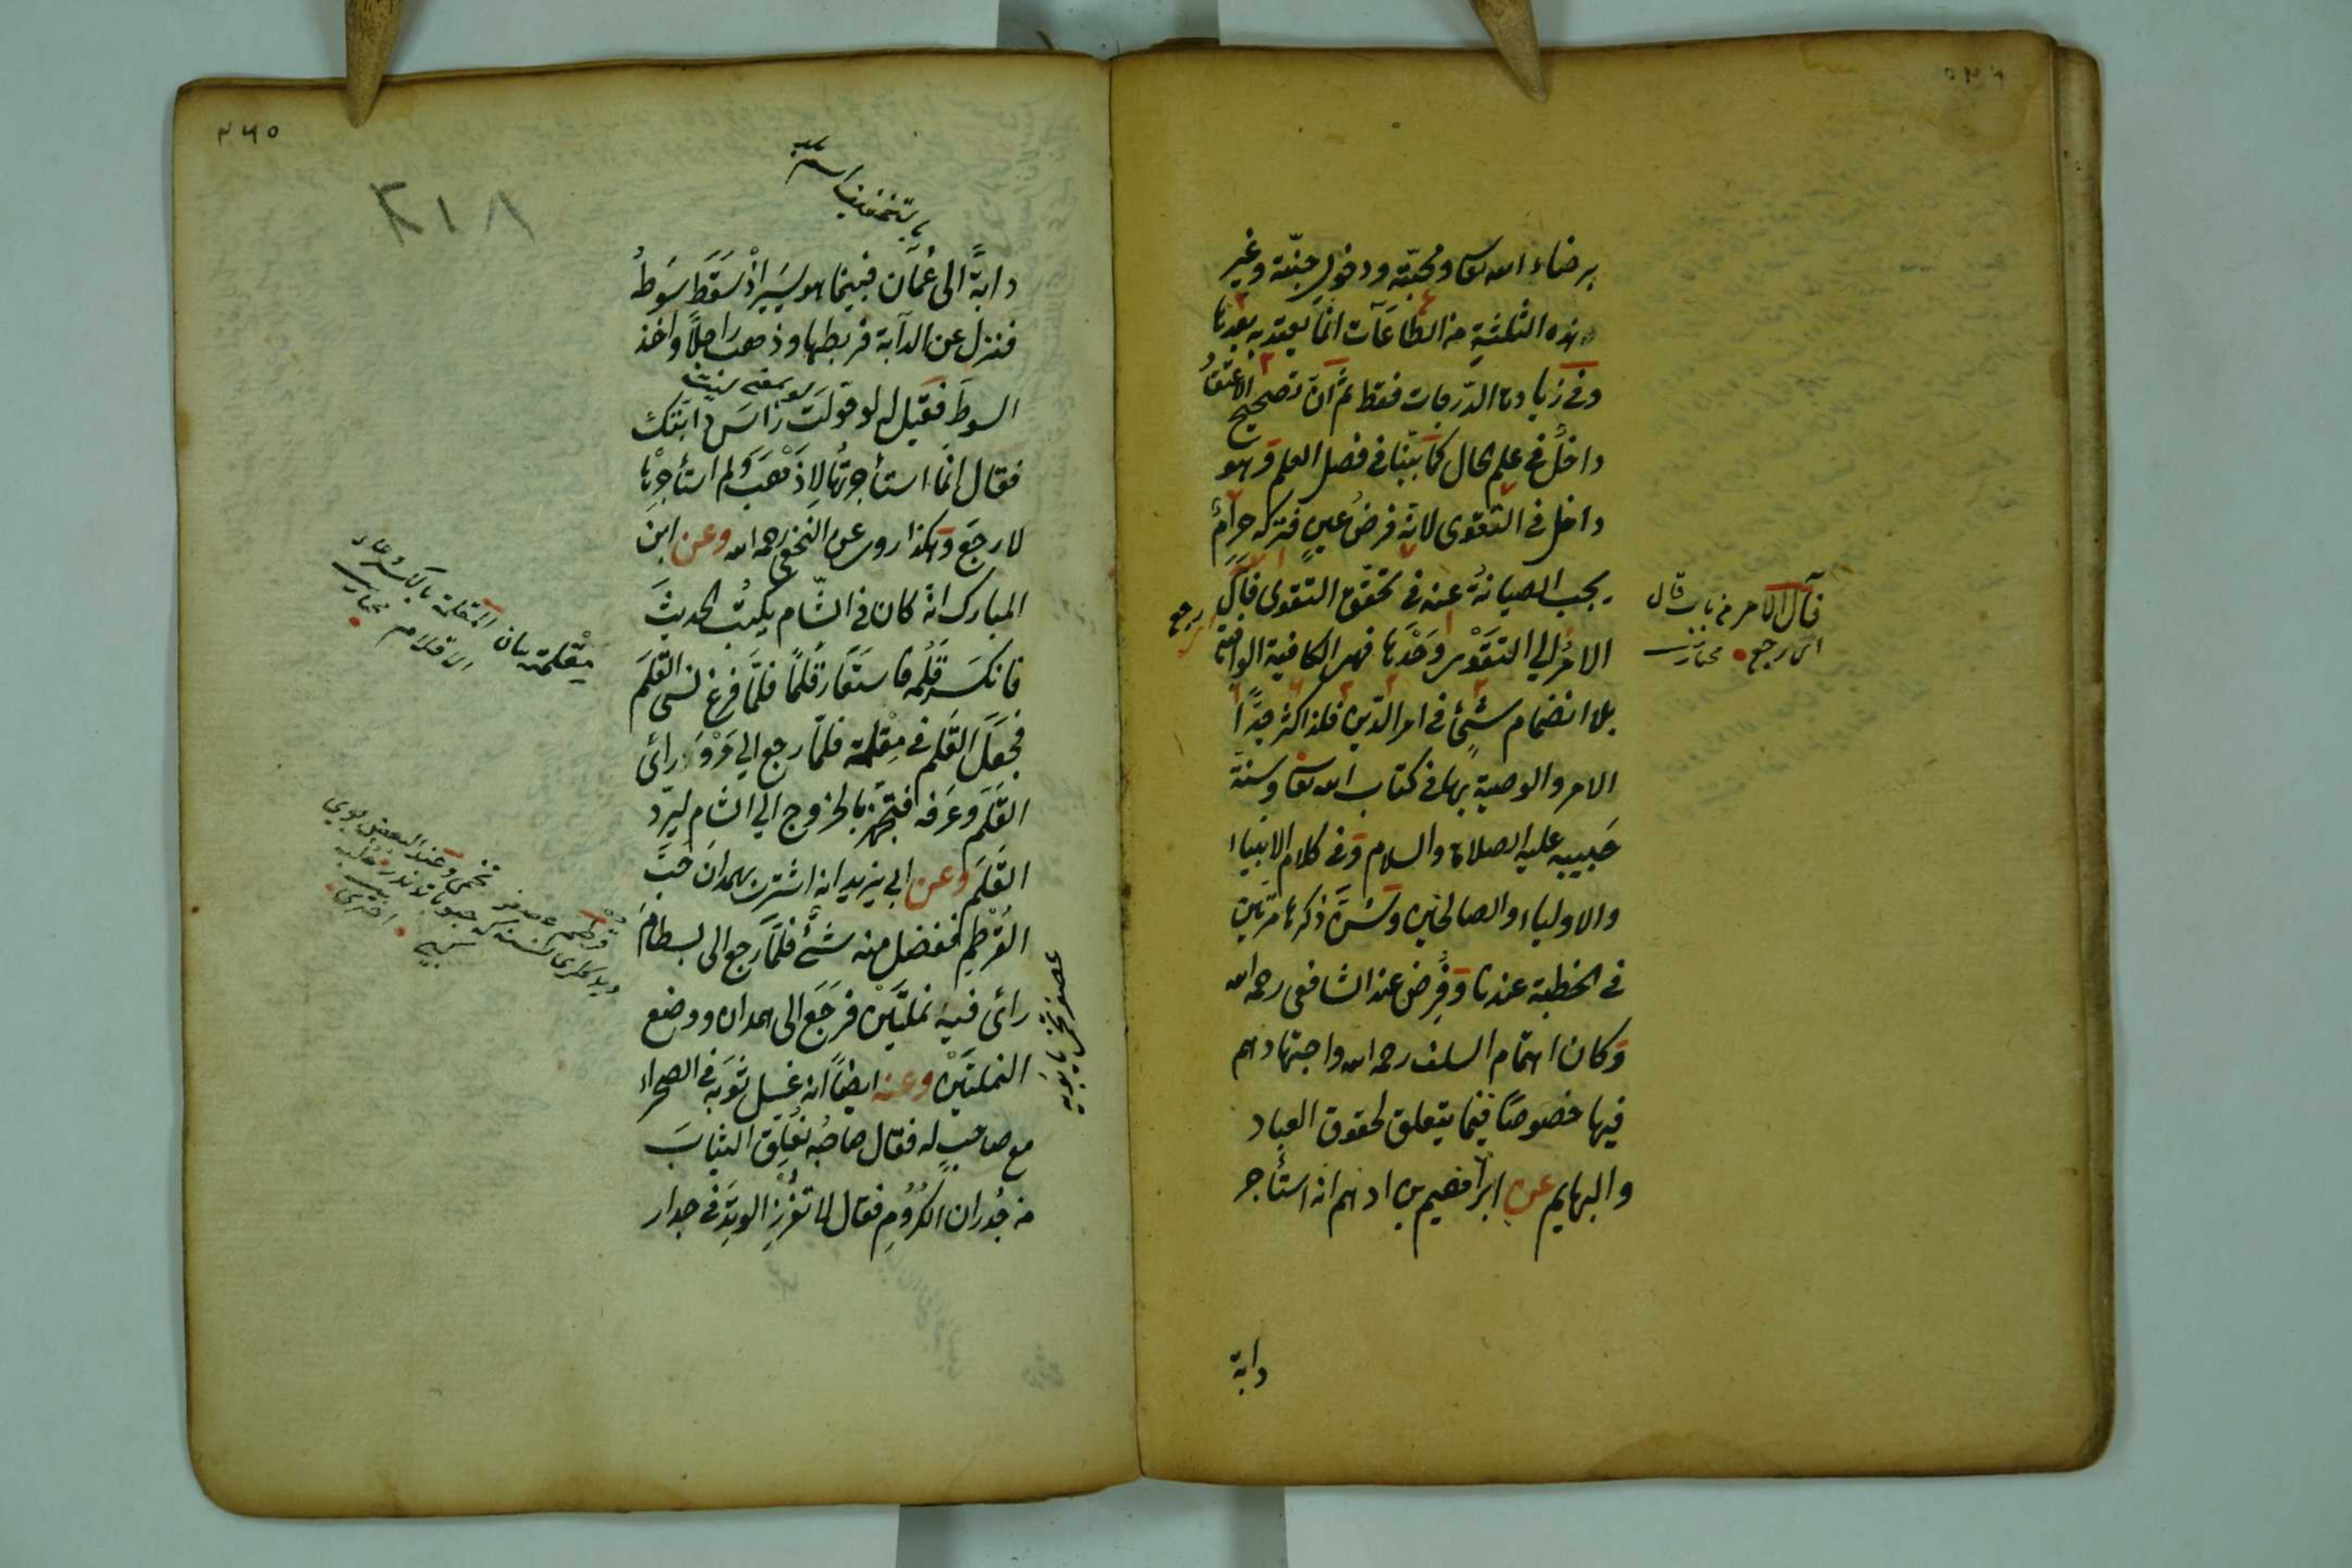 برضاء الله تعا ومحبّته ودخول جنّته وغير
هذه الثلثة من الطاعات انما يعتد به بعدها
وفى زيادة الدّرجات فقط ثم ان تصحيح الاعتقاد
داخل فى علم الحال كما بيّنا فى فصل العلم وهو
داخل فى التقوى لانه فرض عين فتركه حرام
يجب الصيانة عنه فى تحقق التقوى فآل
رجع
الامر الى التقوى وحدها فهى الكافية الوافية
بلا انضمام شئ فى امر الدين فلذا كثر جدّا
الامر والوصية بها فى كتاب الله تعا وسنة
حبيبه عليه الصلاة والسلام وفى كلام الانبياء
والاولياء والصالحين وسنّ ذكرها مرّتين
فى الخطبة عندنا وفرض عند الشافعى رحمه الله
وكان اهتمام السلف رحمه الله واجتهادهم
فيها خصوصا فيما يتعلق لحقوق العباد
والبهايم عن ابراهيم بن ادهم انه استأجر
دابة
فآل الامر من باب قال
اى رجع مختار
٢٦٥
٢١٨
بالتخفيف اسم
دابة الى عمان فبينما هو يسير اذ سقط سوطه
فنزل عن الدآبة فربطها وذهب راجلا واخذ
السوط فقيل له لو حولت رأس دابتك
فقال انما استأجرتها لاذهب ولم استأجرها
لارجع وهكذا روى عن النخعى رحمه الله وعن ابن
المبارك انه كان فى الشام يكتب الحديث
فانكسر قلمه فاستعار قلما فلمّا فرغ نسى القلم
فجعل القلم فى مقلمة فلمّا رجع الى مرو رأى
القلم وعرفه فتجهز بالخروج الى الشام ليردّ
القلم وعن ابى يزيد انه اشترى بهمدان حبّ
القرطم ففضل منه شئ فلمّا رجع الى بسطام
رأى فيه نملتين فرجع الى همدان ووضع
النملتين وعنه ايضا انه غسل ثوبه فى الصحراء
مع صاحب له فقال صاحبه نعلق الثياب
من جدران الكروم فقال لا تغرز الوتد فى جدار
مقلمة
المقلمة بالكسر وعاء
الاقلام مختار
وعند البعض
اخترى